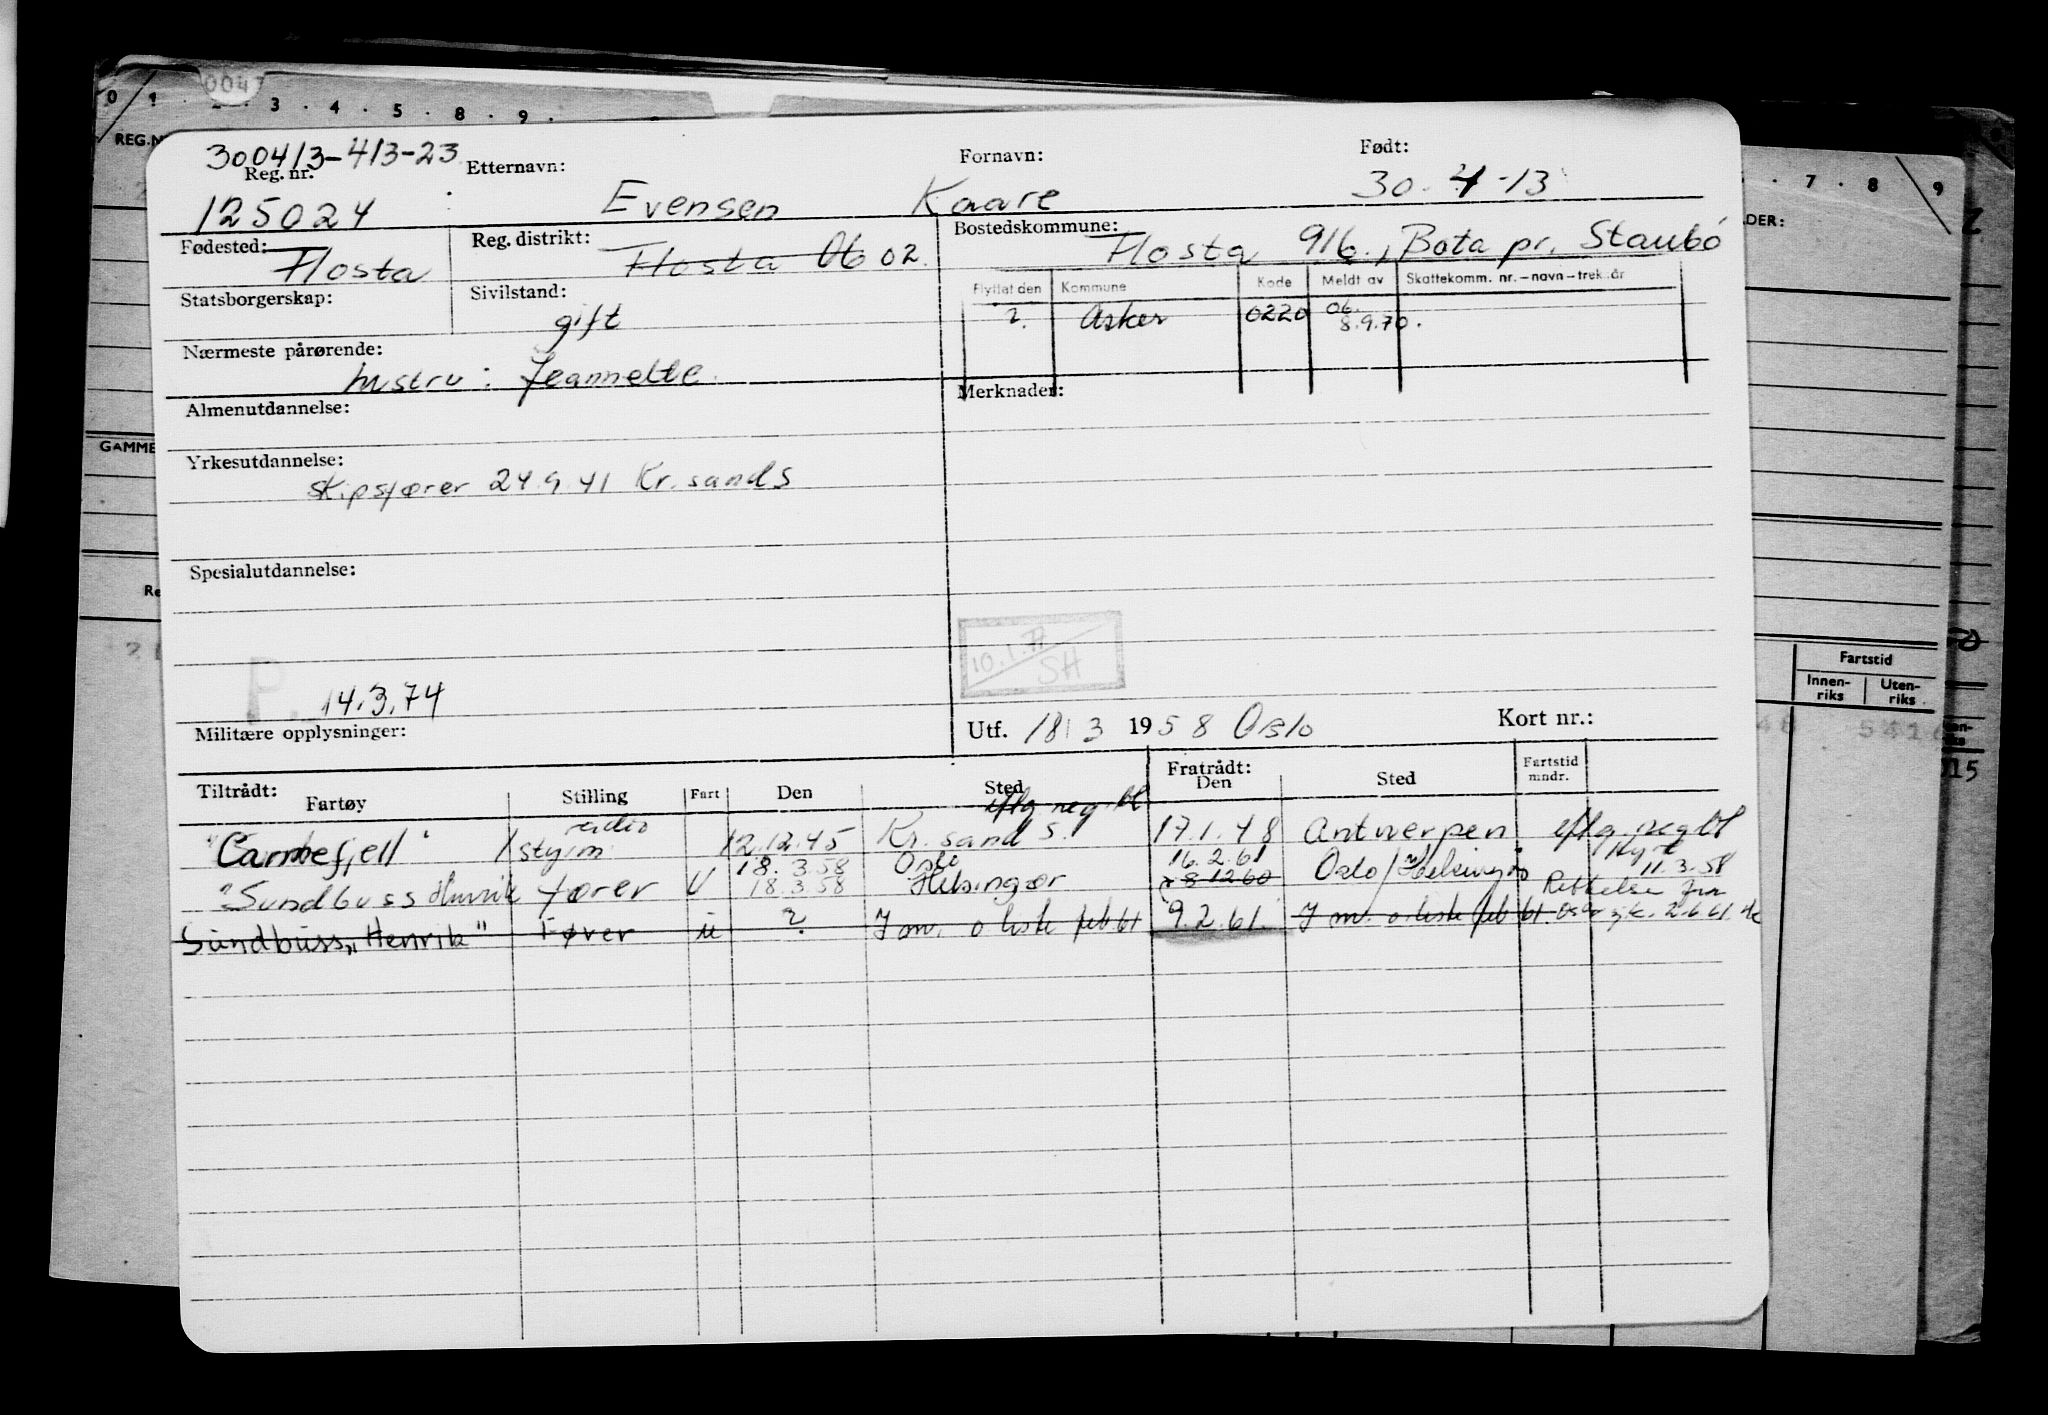 004
0 1 2 3 . 4 . 5 . 8 . 9 .
REG.N
. 7 . 8 9
DER:
300413-413-23
Reg. nr. Etternavn: Fornavn: Født:
125024 Evensen Kaare 30-4-13
Fødested: Reg. distrikt: Bostedskommune:
Flosta Flosta 06 02. Flosta 916., Bota pr. Staubö
Statsborgerskap: Sivilstand: Flyttet den Kommune Kode Meldt av Skattekomm. nr.-navn-trek.år
gift ?. Asker 0220 06 8.9.70.
Nærmeste pårørende:
hustru: Jeannette.
Almenutdannelse: Merknader:
GAMME
Yrkesutdannelse:
skipsfører 24.9.41 Kr.sands
Spesialutdannelse:
Re
10.1.
SH
P. 14.3.74
Fartstid
Innen-riks Uten-riks
Militære opplysninger: Utf. 18/3 1958 Oslo Kort nr.:
15
Tiltrådt: Fratrådt:
Fartøy Stilling Fart Den Sted Den Sted Fartstid mndr.
iflg reg.bl
radio
"Carmefjell" 1 styrm 12.12.45 Kr.sand S. 17.1.48 Antwerpen iflg. reg bl
18.3.58 Oslo 16.2.61 11.3.58
"Sundbuss Henrik fører U 18.3.58 Helsingør 8 12 60 Oslo/Helsingør Rettelse fra
Sundbuss "Henrik" Fører u ? J mr. o liste feb 61 9.2.61. J mr. o liste feb 61. Oslo 2.6.61